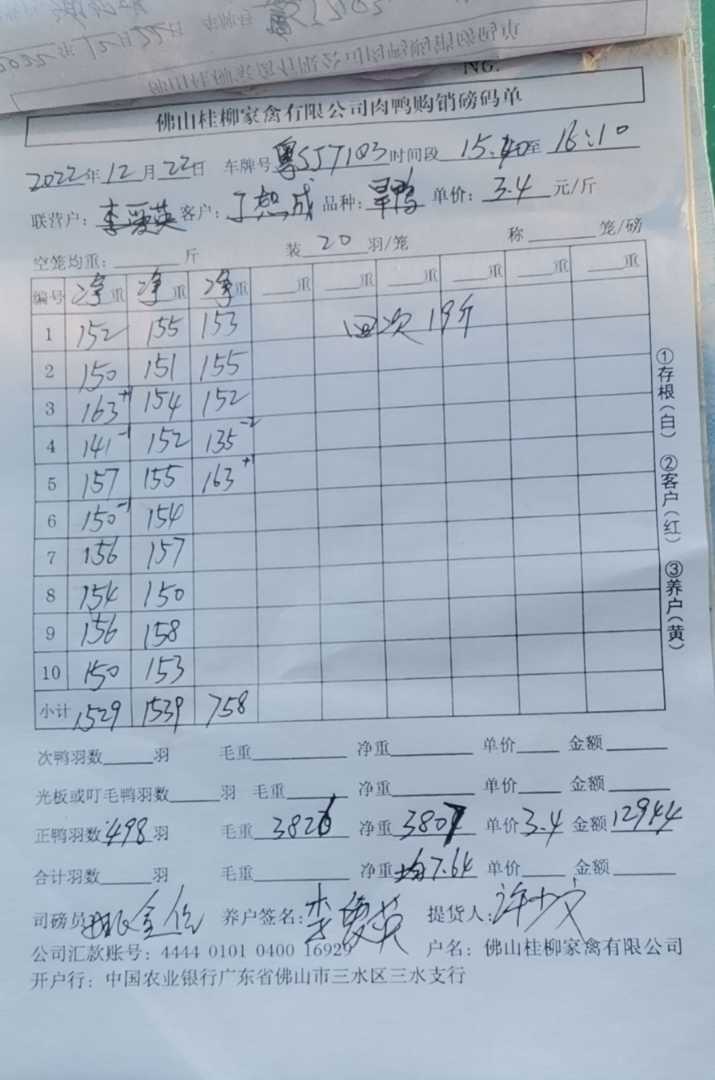 2022年12月22日
No.
佛山桂柳家禽有限公司肉鸭购销磅码单
2022年12月22日 车牌号粤SJ7103时间段 15:40至 16:10
联营户:李爱英 客户: 品种:旱鸭 单价:3.4 元/斤
空笼均重: 斤 装 20 羽/笼 称 笼/磅
编号 净重 净重 净重 重 重 重 重 重 重
1 152 155 153 四次 19斤
2 150 151 155
3 163+1 154 152
4 141-1 152 135-2
5 157 155 163+1
6 150-1 154
7 156 157
8 154 150
9 156 158
10 150 153
小计 1529 1539 758
次鸭羽数 羽 毛重 净重 单价 金额
光板或叮毛鸭羽数 羽 毛重 净重 单价 金额
正鸭羽数 498 羽 毛重 3826 净重 3807 单价 3.4 金额 12944
合计羽数 羽 毛重 净重 均7.64 单价 金额
司磅员 养户签名:李爱英 提货人:许少文
公司汇款账号:4444 0101 0400 16929 户名:佛山桂柳家禽有限公司
开户行:中国农业银行广东省佛山市三水区三水支行
①存根(白) ②客户(红) ③养户(黄)